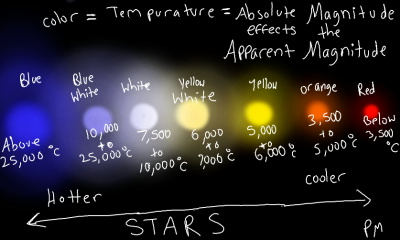 color = Tempurature = Absolute Magnitude
effects the
Apparent Magnitude
Blue
Blue White
White
Yellow White
Yellow
orange
Red
Above 25,000 °C
10,000 to 25,000°C
7,500 to 10,000°C
6,000 to 7000°C
5,000 to 6,000°C
3,500 to 5,000°C
Below 3,500 °C
Hotter
cooler
STARS
PM